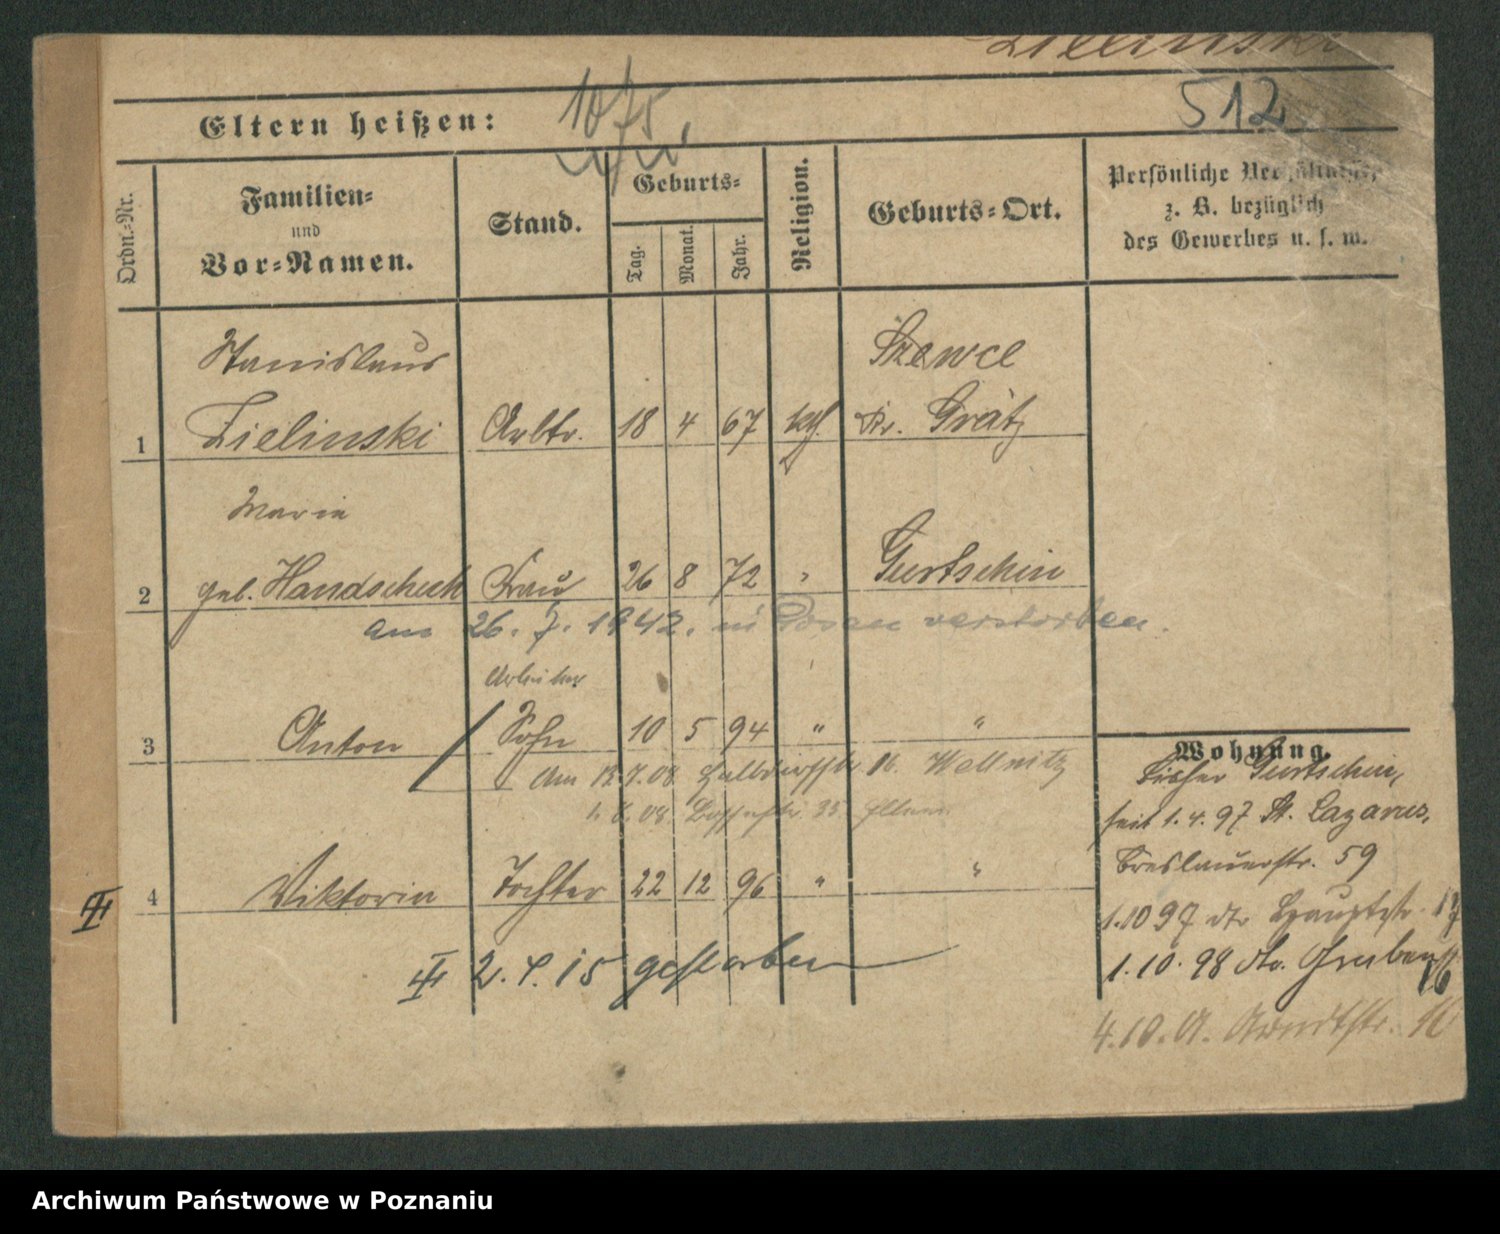 Zielinski
512
Eltern heißen: 1075.
Ordn.-Nr.
Familien-
und
Vor-Namen.
Stand.
Geburts-
Tag. Monat. Jahr.
Religion.
Geburts-Ort.
Persönliche Verhältnisse,
z. B. bezüglich
des Gewerbes u. s. w.
Stanislaus Szewce
1 Zielinski Arbtr. 18 4 67 kth. Kr. Grätz
Maria
2 geb. Handschuh Frau 26 8 72 " Gurtschin
am 26. 7. 1942. in Posen verstorben.
Arbeiter
3 Anton Sohn 10 5 94 " "
Am 12.7.08 Halbdorfstr. 16. Wellnitz
1. 8. 08. 35 Eltern
4 Viktoria Tochter 22 12 96 " "
II 2. 4. 15 gestorben
III
Wohnung.
Bisher Gurtschin,
seit 1. 4. 97 St. Lazarus,
Breslauerstr. 59
1.10 97 dto Hauptstr. 17
1. 10. 98 dto. Graben 16
4. 10. 01. Arndtstr. 16
Archiwum Państwowe w Poznaniu